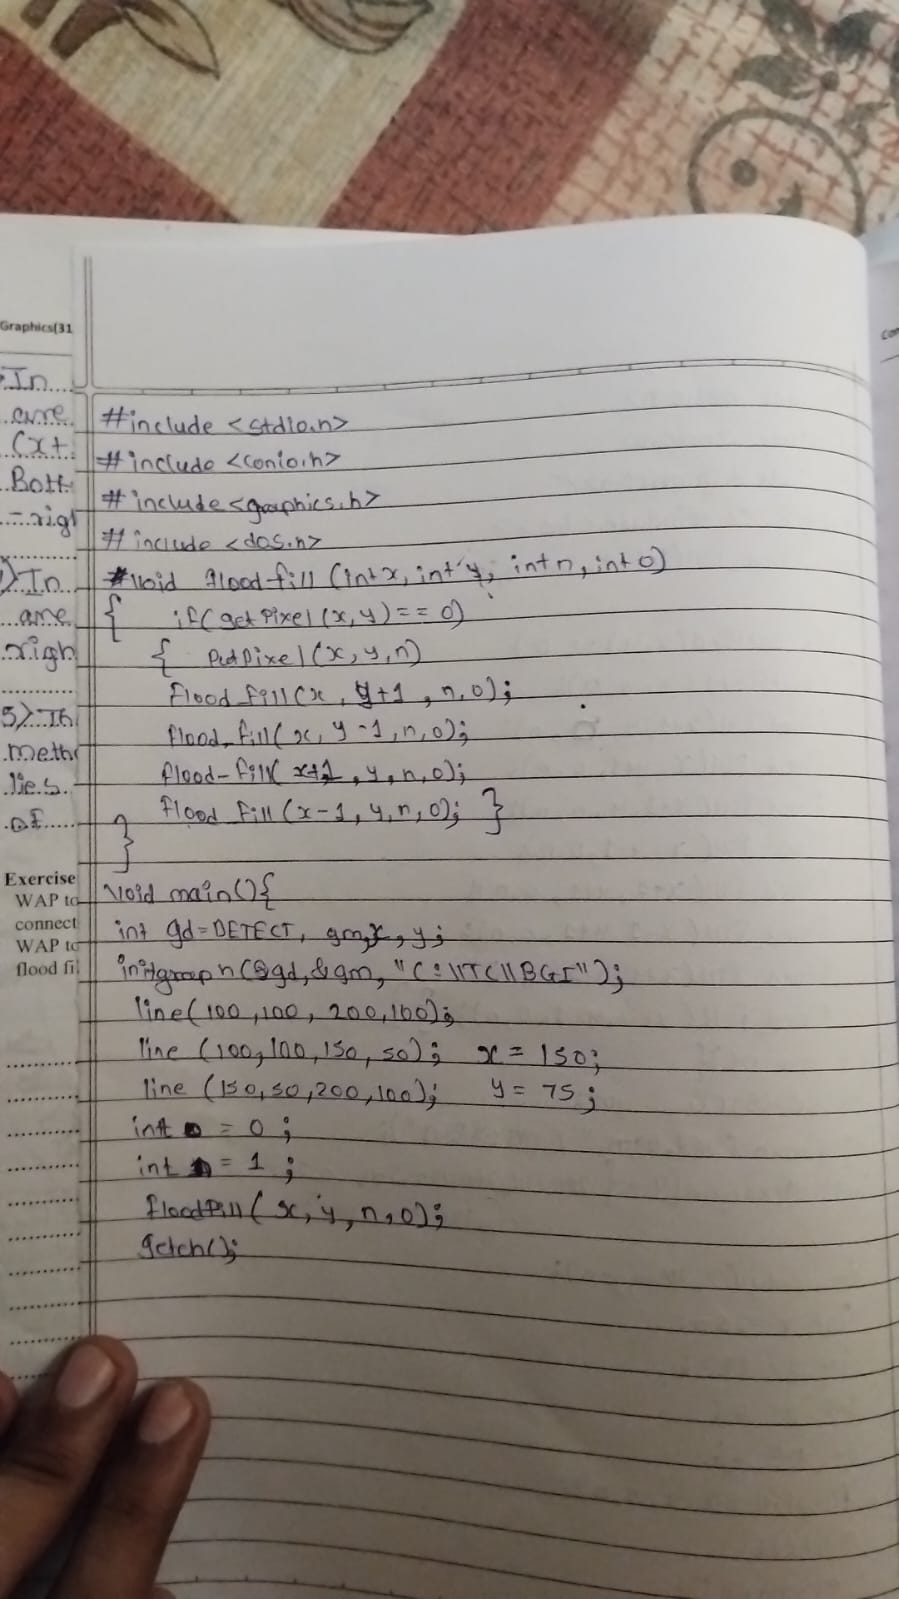 Graphics(31
Con
In
are
(x+
Bott
- righ
In
are
righ
5) In
meth
lies.
of
Exercise
WAP to
connect
WAP to
flood fi
#include <stdio.h>
#include <conio.h>
#include <graphics.h>
#include <dos.h>
void flood-fill (int x, int y, int n, int o)
{ if(getPixel(x,y)==0)
{ PutPixel(x,y,n)
flood_fill(x, y+1, n,0);
flood_fill(x, y-1,n,0);
flood-fill( x+1, y,n,0);
flood fill(x-1, y,n,0); }
}
void main(){
int gd=DETECT, gm,x,y;
initgraph(&gd,&gm, "C:\\TC\\BGI");
line(100,100, 200,100);
line (100,100,150,50); x=150;
line (150,50,200,100); y=75;
int o = 0;
int n = 1;
floodfill( x, y, n,0);
getch();